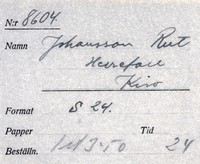 N:r 8604.
Namn Johansson Rut
Herrefall
Kiro
Format S 24.
Papper Tid
Beställn. 1st 3-50 24